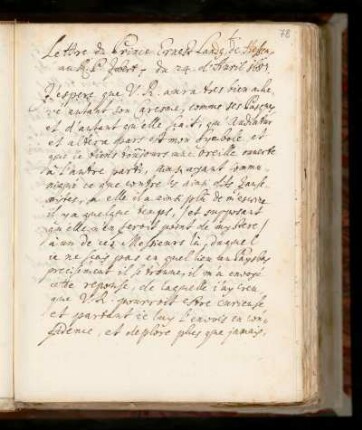 78
Lettre du Prince Ernest Landg. de Hessen
au R. P. Jobert, du 24. d'Avril 1683
J'espere que V. R. aura tres bien achevé
autant son Caresme, comme ses Pasques
et d'autant qu'elle sçait, qu' Audiatur
et altera pars est mon Symbole et
que je tiens tousjours une oreille ouverte
à l'autre partie, luy ayant commu-
niqué ce que contre les ainsi dits Janse-
nistes, elle il a ainsi plû de m'escrire
il y a quelque temps, /et supposant
qu'elle n'en feroit point de mystere/
à un de ces Messieurs là, duquel
je ne sçais pas en quel lieu au Paysbas
precisement il se trouve, il m'a envoyé
cette reponse, de laquelle j'ay creu
que V. R. pourroit estre curieuse
et partant je luy l'envois en con-
fidence, et deplore plus que jamais,